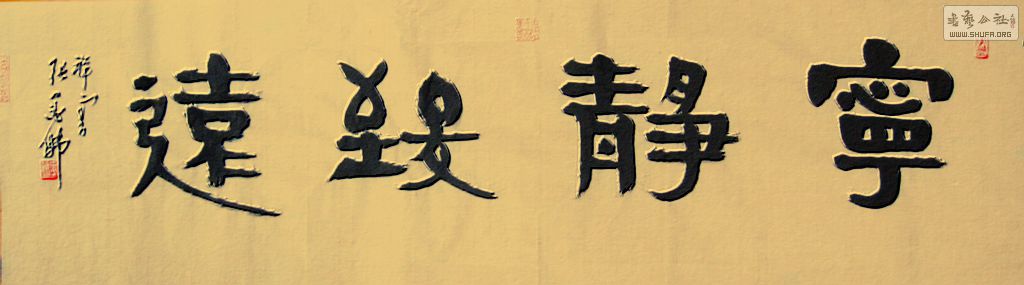 寧靜致遠
書藝公社
WWW.SHUFA.ORG